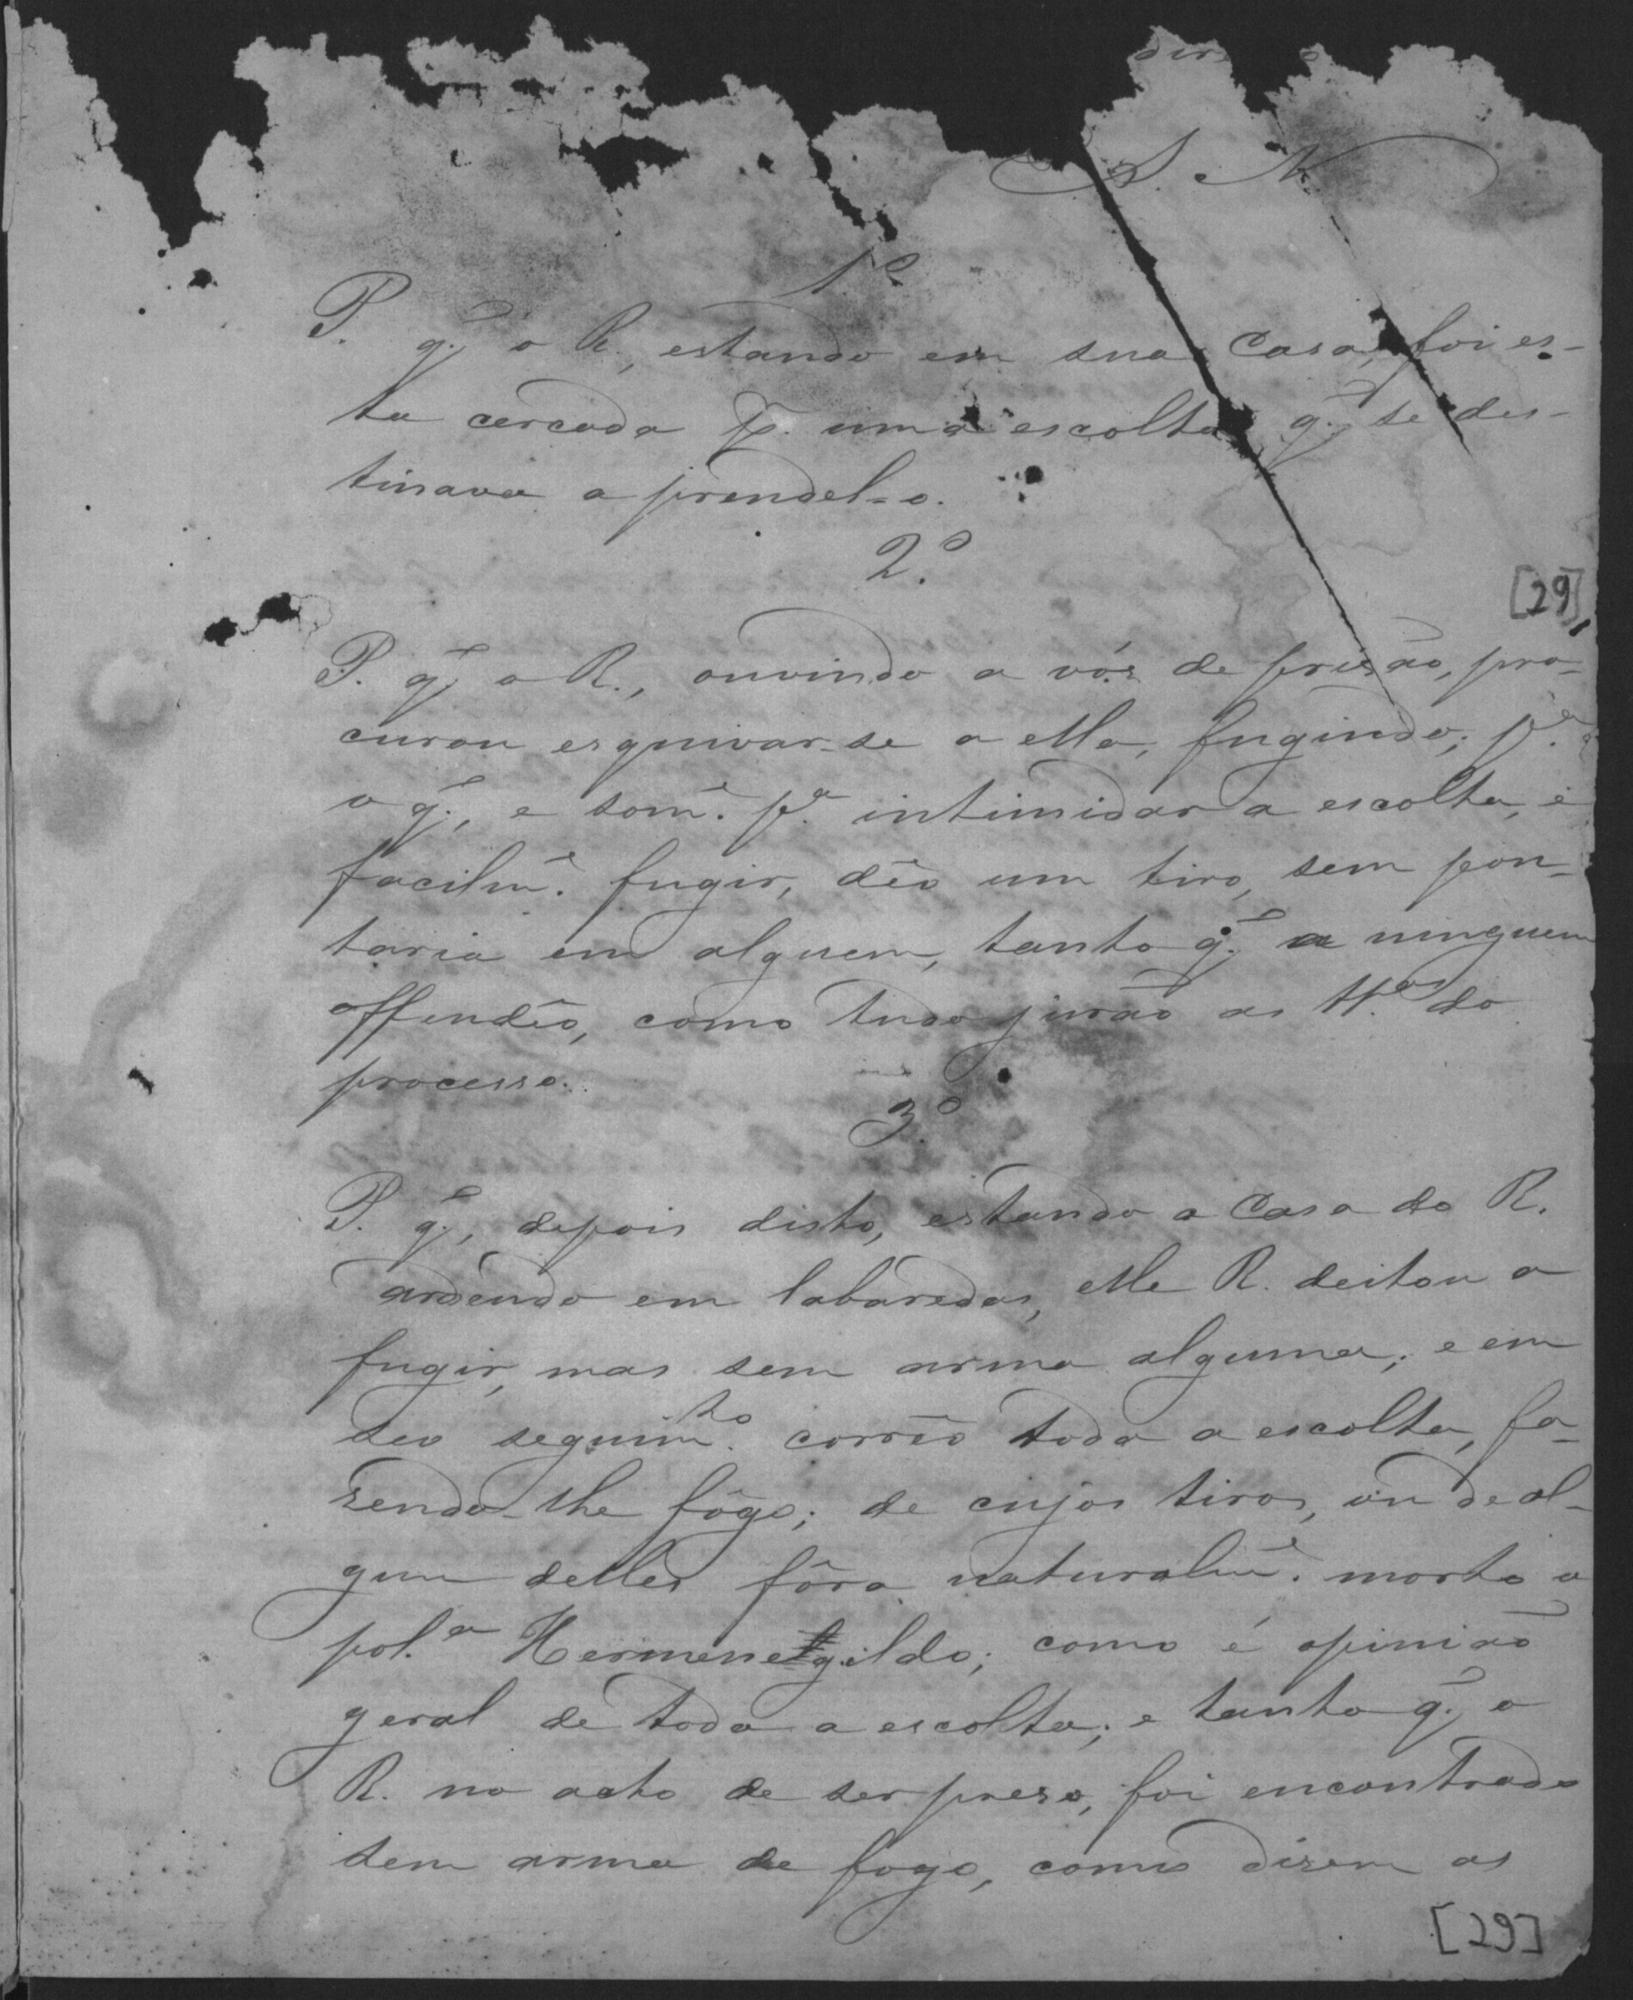 S. N
1º
P. q̃. o R., estando em sua casa, foi es-
ta cercada p. uma escolta q̃. se des-
tinava a prendel-o.
2.º
[29]
P. q̃. o R., ouvindo a vós de prisão, pro-
curou esquivar-se a ella, fugindo; p.ª
o q̃., e som.e p.ª intimidar a escolta, e
facilm.e fugir, dêo um tiro, sem pon-
taria em alguem, tanto q̃. a ninguem
offendêo, como tudo jurão as tt.as do
processo.
3.º
P. q̃., depois disto, estando a casa do R.
ardendo em labaredas, elle R. deitou a
fugir, mas sem arma alguma; e em
seo seguim.to corrêo toda a escolta, fa-
zendo-lhe fôgo; de cujos tiros, ou de al-
gum delles fôra naturalm.e morto o
pol.ª Hermenegildo; como é opinião
geral de toda a escolta; e tanto q̃. o
R. no acto de ser preso, foi encontrado
sem arma de fogo, como dizem as
[29]